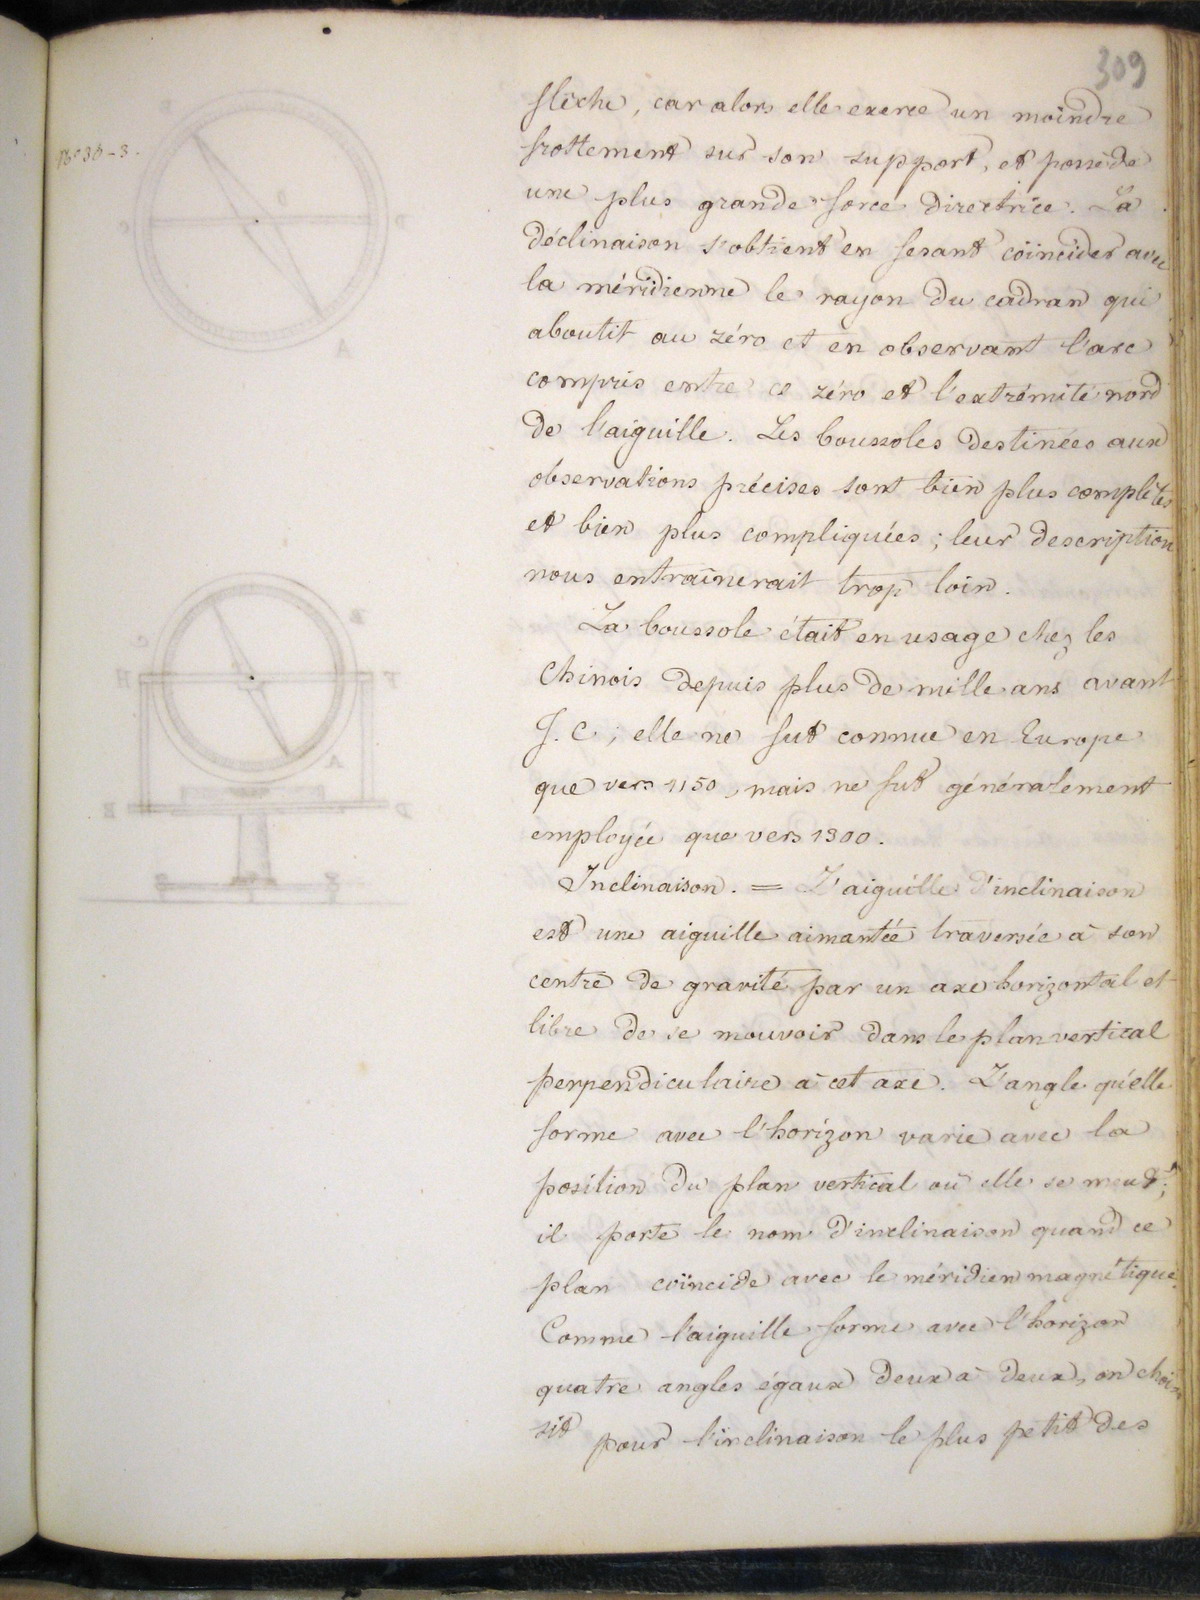 309
flèche, car alors elle exerce un moindre
frottement sur son support, et possède
une plus grande force directrice. La
déclinaison s'obtient en fesant coïncider avec
la méridienne le rayon du cadran qui
aboutit au zéro et en observant l'arc
compris entre ce zéro et l'extrémité nord
de l'aiguille. Les boussoles destinées aux
observations précises sont bien plus complètes
et bien plus compliquées ; leur description
nous entraînerait trop loin.
La boussole était en usage chez les
Chinois depuis plus de mille ans avant
J. C ; elle ne fut connue en Europe
que vers 1150, mais ne fut généralement
employée que vers 1300.
Inclinaison. = L'aiguille d'inclinaison
est une aiguille aimantée traversée à son
centre de gravité par un axe horizontal et
libre de se mouvoir dans le plan vertical
perpendiculaire à cet axe. L'angle qu'elle
forme avec l'horizon varie avec la
position du plan vertical où elle se meut ;
il porte le nom d'inclinaison quand ce
plan coïncide avec le méridien magnétique.
Comme l'aiguille forme avec l'horizon
quatre angles égaux deux à deux, on choi
sit pour l'inclinaison le plus petit des